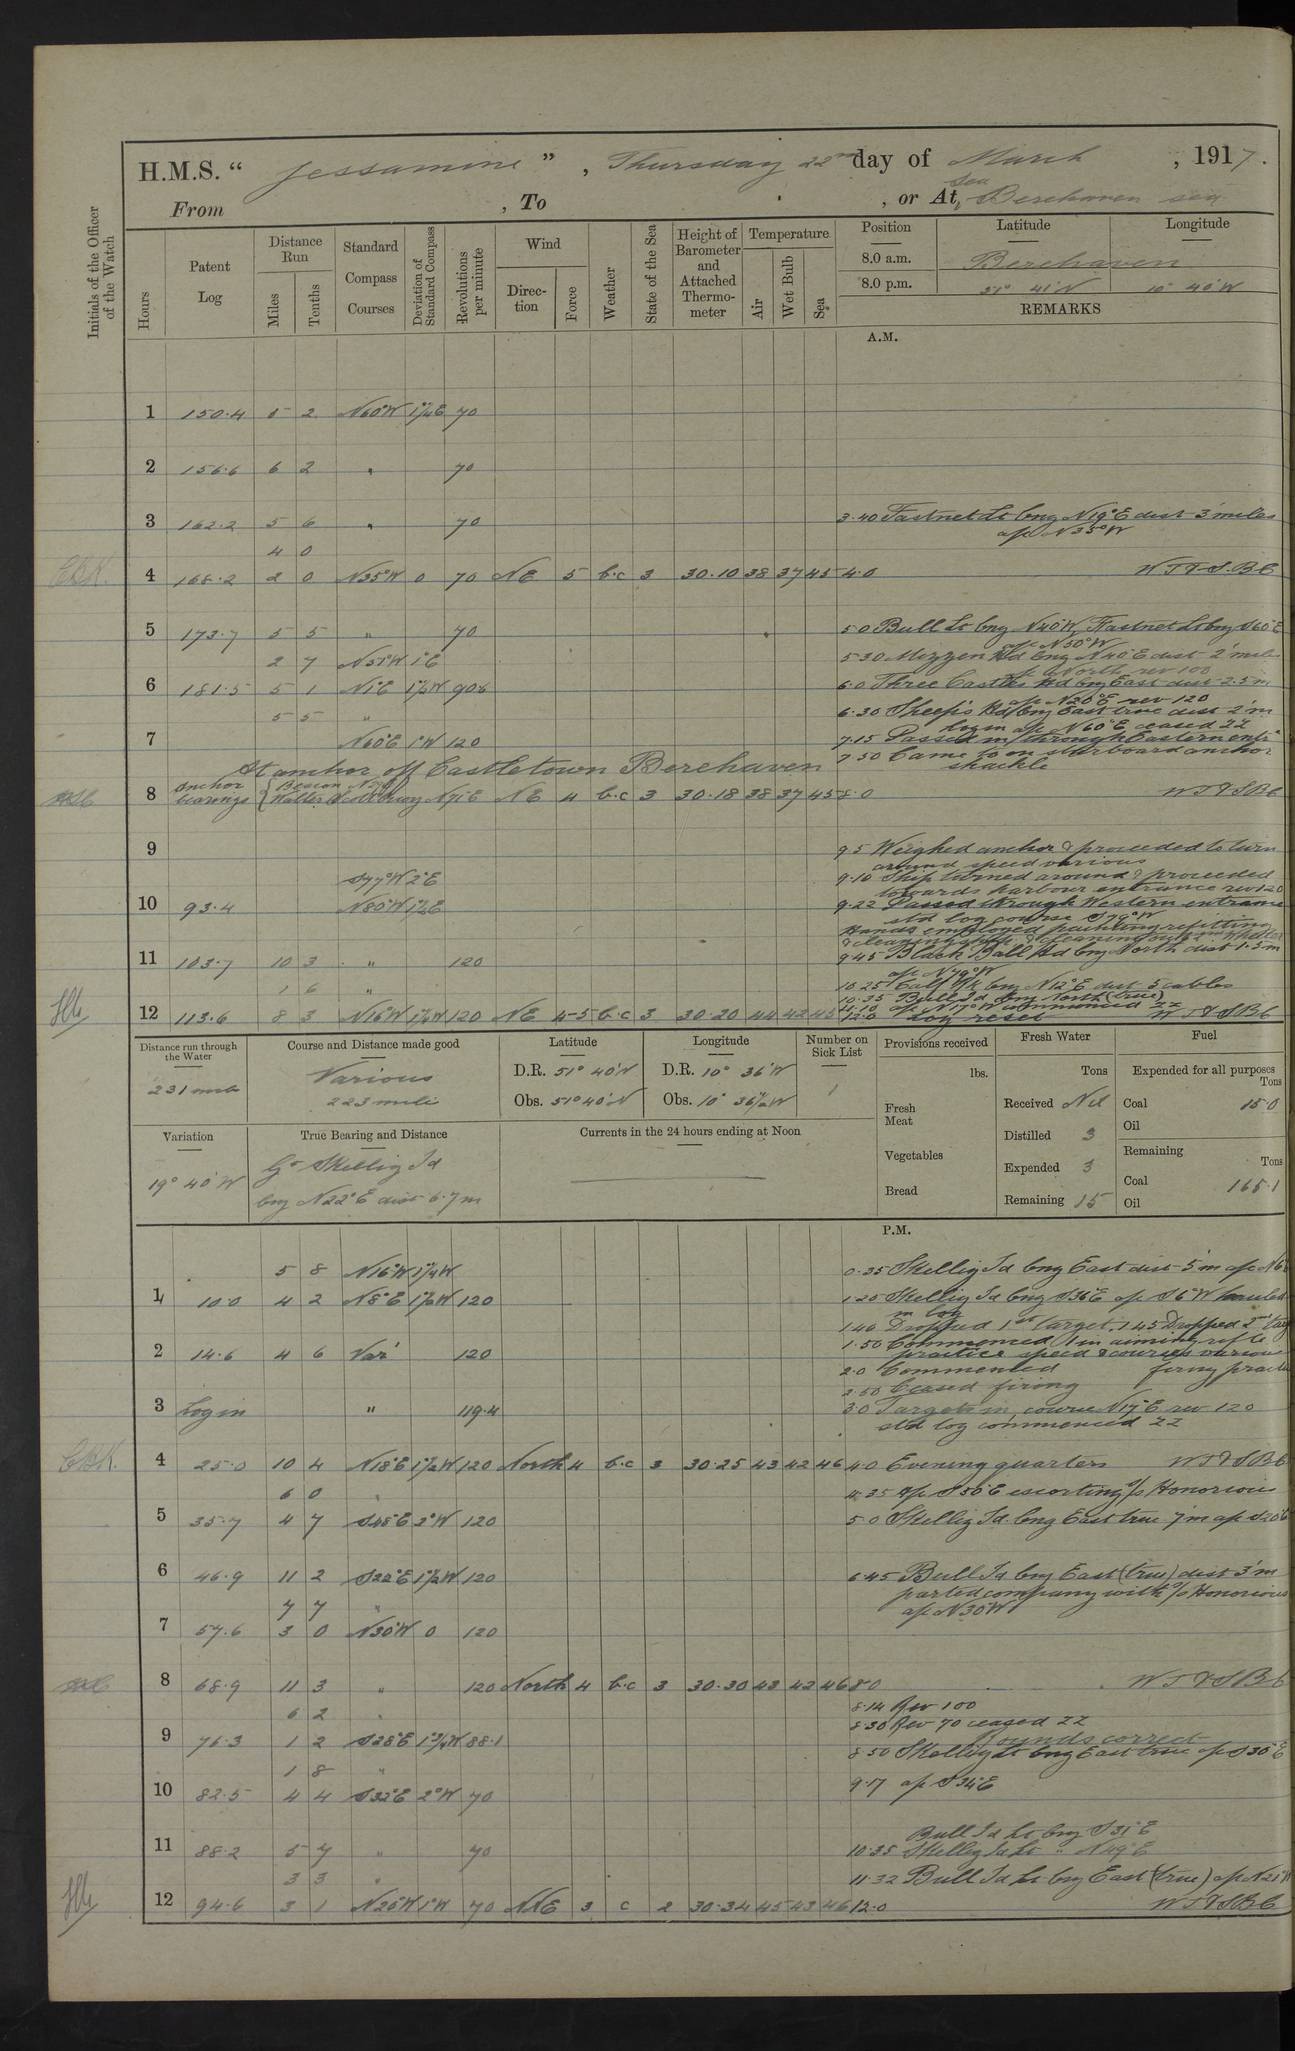 H.M.S. “ Jessamine ” , Thursday 22nd day of March , 1917.
From , To , or At Sea Berehaven sea
Initials of the Officer of the Watch
Hours
Patent Log
Distance Run
Miles
Tenths
Standard Compass Courses
Deviation of Standard Compass
Revolutions per minute
Wind
Direction
Force
Weather
State of the Sea
Height of Barometer and Attached Thermometer
Temperature
Air
Wet Bulb
Sea
Position Latitude Longitude
8.0 a.m. Berehaven
8.0 p.m. 51° 41'N 10° 40'W
REMARKS
A.M.
1 150.4 5 2 N60°W 1½E 70
2 156.6 6 2 " 70
3 162.2 5 6 " 70 3.40 Fastnet Lt brg N19°E dist 3 miles
4 0 a/c N35°W
4 168.2 2 0 N35°W 0 70 NE 5 b.c 3 30.10 38 37 45 4.0 W T & S.B C
5 173.7 5 5 " 70 5.0 Bull Lt brg N40°W, Fastnet Lt brg S60°E
a/c N50°W
2 7 N51°W 1°E 5.30 Mizzen Hd brg N40°E dist 2 miles
a/c North rev 100
6 181.5 5 1 N1°E 1½W 90.6 6.0 Three Castles Hd brg East dist 2.5 m
a/c N20°E rev 120
5 5 " 6.30 Sheep's Hd brg East true dist 2 m
log in a/c N60°E ceased ZZ
7 N60°E 1°W 120 7.15 Passed in through Eastern entr
7.50 Came to on starboard anchor
shackle
At anchor off Castletown Berehaven
8 Anchor bearings { Beacon
Walter Scott buoy N71°E NE 4 b.c 3 30.18 38 37 45 8.0 W T & S B C
9 9.5 Weighed anchor & proceeded to turn
around speed various
S77°W 2°E 9.10 Ship turned around & proceeded
towards harbour entrance rev 120
10 93.4 N80°W 1½E 9.22 Passed through Western entrance
std log course S79°W
Hands employed painting, refitting
11 103.7 10 3 " 120 9.45 Black Ball Hd brg North dist 1.5 m
a/c N79°W
1 6 " 10.25 Calf Rk brg N12°E dist 5 cables
10.35 Bull Id brg North (true)
11.10 a/c N17°W commenced ZZ
12 113.6 8 3 N16°W 1¼W 120 NE 4-5 b.c 3 30.20 44 42 45 12.0 Log reset W T & S B C
Distance run through the Water
231 miles
Course and Distance made good
Various
223 miles
Latitude
D.R. 51° 40'N
Obs. 51° 40'N
Longitude
D.R. 10° 36'W
Obs. 10° 36½W
Number on Sick List
1
Provisions received
lbs.
Fresh Meat
Vegetables
Bread
Fresh Water
Tons
Received Nil
Distilled 3
Expended 3
Remaining 15
Fuel
Expended for all purposes
Tons
Coal 15.0
Oil
Remaining
Tons
Coal 165.1
Oil
Variation
19° 40'W
True Bearing and Distance
Gt Skellig Id
brg N22°E dist 6.7 m
Currents in the 24 hours ending at Noon
P.M.
5 8 N16°W 1¼W 0.35 Skellig Id brg East dist 5 m a/c
1 10.0 4 2 N8°E 1½W 120 1.20 Skellig Id brg S36°E a/c S6°W hauled
in log
1.40 Dropped 1st target. 1.45 Dropped 2nd
2 14.6 4 6 Var' 120 1.50 Commenced 1 in aiming rifle
practice speed & courses various
2.0 Commenced firing
2.50 Ceased firing
3 Log in " 119.4 3.0 Targets in, course N17°E rev 120
std log commenced ZZ
4 25.0 10 4 N18°E 1½W 120 North 4 b.c 3 30.25 43 42 46 4.0 Evening quarters W T & S B C
6 0 " 4.35 a/c S50°E escorting s/s Honorious
5 35.7 4 7 S48°E 2°W 120 5.0 Skellig Id brg East true 7 m a/c S20°E
6 46.9 11 2 S22°E 1½W 120 6.45 Bull Id brg East (true) dist 3 m
7 7 " parted company with s/s Honorious
7 57.6 3 0 N30°W 0 120 a/c N30°W
8 68.9 11 3 " 120 North 4 b.c 3 30.30 43 42 46 8.0 W T & S B C
6 2 " 8.14 Rev 100
8.30 Rev 70 ceased ZZ
Rounds correct
9 76.3 1 2 S28°E 1¾W 88.1 8.50 Skellig Lt brg East true a/c S30°E
1 8 "
10 82.5 4 4 S32°E 2°W 70 9.17 a/c S34°E
Bull Id Lt brg S31°E
11 88.2 5 7 " 70 10.35 Skellig Id Lt " N49°E
3 3 " 11.32 Bull Id Lt brg East (true) a/c N21°W
12 94.6 3 1 N20°W 1°W 70 NNE 3 c 2 30.34 45 43 46 12.0 W T & S B C